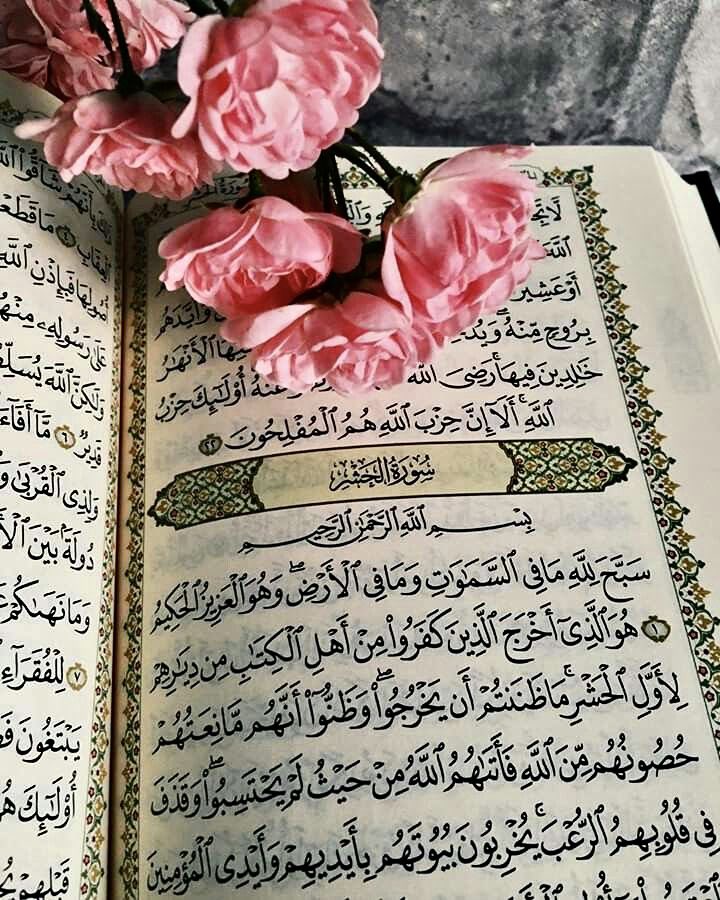 ٱللَّهَ
أَوْ عَشِيرَ وَأَيَّدَهُم
بِرُوحٍ مِّنْهُ وَيُدْ ٱلْأَنْهَٰرُ
خَٰلِدِينَ فِيهَا ۚ رَضِىَ ٱللَّهُ أُو۟لَٰٓئِكَ حِزْبُ
ٱللَّهِ ۚ أَلَآ إِنَّ حِزْبَ ٱللَّهِ هُمُ ٱلْمُفْلِحُونَ ٢٢
سُورَةُ الحَشْرِ
بِسْمِ ٱللَّهِ ٱلرَّحْمَٰنِ ٱلرَّحِيمِ
سَبَّحَ لِلَّهِ مَا فِى ٱلسَّمَٰوَٰتِ وَمَا فِى ٱلْأَرْضِ ۖ وَهُوَ ٱلْعَزِيزُ ٱلْحَكِيمُ
١ هُوَ ٱلَّذِىٓ أَخْرَجَ ٱلَّذِينَ كَفَرُوا۟ مِنْ أَهْلِ ٱلْكِتَٰبِ مِن دِيَٰرِهِمْ
لِأَوَّلِ ٱلْحَشْرِ ۚ مَا ظَنَنتُمْ أَن يَخْرُجُوا۟ ۖ وَظَنُّوٓا۟ أَنَّهُم مَّانِعَتُهُمْ
حُصُونُهُم مِّنَ ٱللَّهِ فَأَتَىٰهُمُ ٱللَّهُ مِنْ حَيْثُ لَمْ يَحْتَسِبُوا۟ ۖ وَقَذَفَ
فِى قُلُوبِهِمُ ٱلرُّعْبَ ۚ يُخْرِبُونَ بُيُوتَهُم بِأَيْدِيهِمْ وَأَيْدِى ٱلْمُؤْمِنِينَ
ذَٰلِكَ بِأَنَّهُمْ شَآقُّوا۟ ٱللَّهَ
ٱلْعِقَابِ ٤ مَا قَطَعْ
أُصُولِهَا فَبِإِذْنِ ٱللَّهِ
عَلَىٰ رَسُولِهِۦ مِنْهُ
وَلَٰكِنَّ ٱللَّهَ يُسَلِّ
قَدِيرٌ ٦ مَّآ أَفَآءَ
وَلِذِى ٱلْقُرْبَىٰ وَ
دُولَةًۢ بَيْنَ ٱلْأَ
وَمَا نَهَىٰكُمْ عَ
٧ لِلْفُقَرَآءِ
يَبْتَغُونَ فَ
أُو۟لَٰٓئِكَ هُ
قَبْلِهِمْ يُ